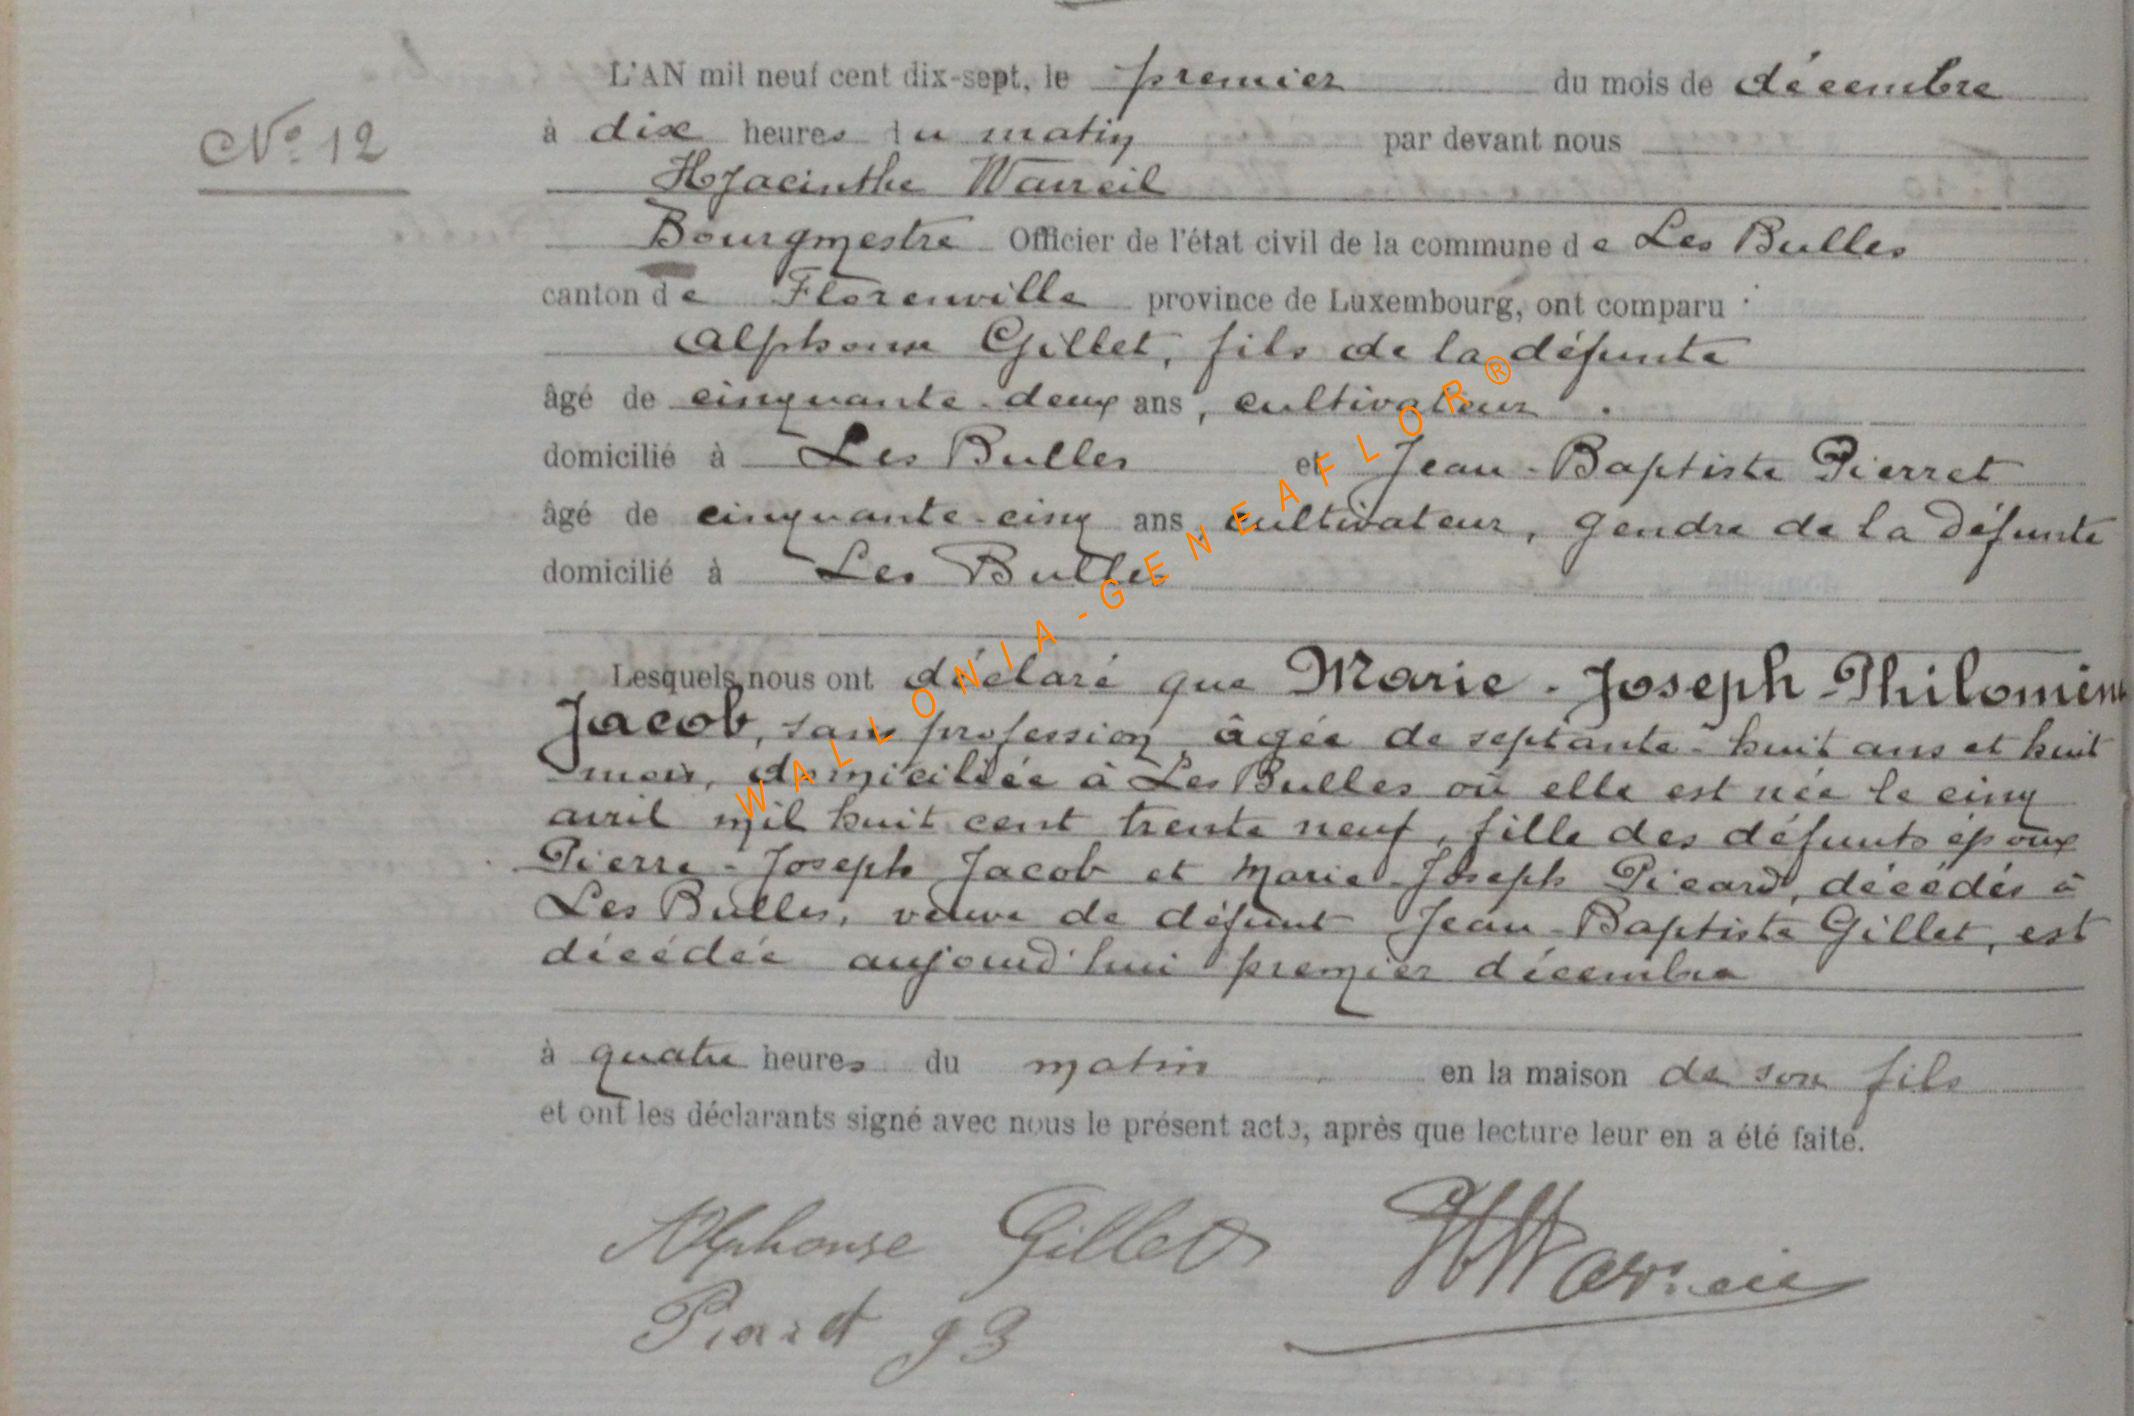 L'AN mil neuf cent dix-sept, le premier du mois de décembre
N° 12
à dix heures du matin par devant nous
Hyacinthe Waureil
Bourgmestre Officier de l'état civil de la commune de Les Bulles
canton de Florenville province de Luxembourg, ont comparu :
Alphonse Gillet, fils de la défunte
âgé de cinquante-deux ans, cultivateur.
domicilié à Les Bulles et Jean-Baptiste Pierret
âgé de cinquante-cinq ans, cultivateur, gendre de la défunte
domicilié à Les Bulles
Lesquels nous ont déclaré que Marie-Joseph-Philomène
Jacob, sans profession, âgée de septante-huit ans et huit
mois, domiciliée à Les Bulles où elle est née le cinq
avril mil huit cent trente neuf, fille des défunts époux
Pierre-Joseph Jacob et Marie-Joseph Picard, décédés à
Les Bulles, veuve de défunt Jean-Baptiste Gillet, est
décédée aujourd'hui premier décembre
à quatre heures du matin en la maison de son fils
et ont les déclarants signé avec nous le présent acte, après que lecture leur en a été faite.
Alphonse Gillet
WALLONIA-GENEAFLOR®